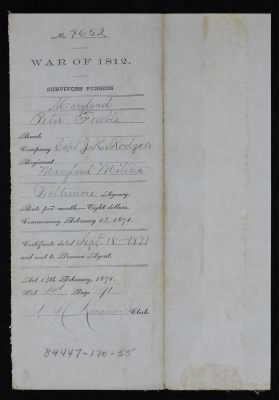 No. 9652
WAR OF 1812.
SURVIVORS PENSION.
Maryland
Peter
Rank
Company Capt J. H. Rodgers
Regiment
Maryland Militia
Baltimore Agency.
Rate per month—Eight dollars.
Commencing February 14, 1871.
Certificate dated Sept. 18 1871
and sent to Pension Agent.
Act 14th February, 1871.
Vol. Page
Clerk.
84447-120-55